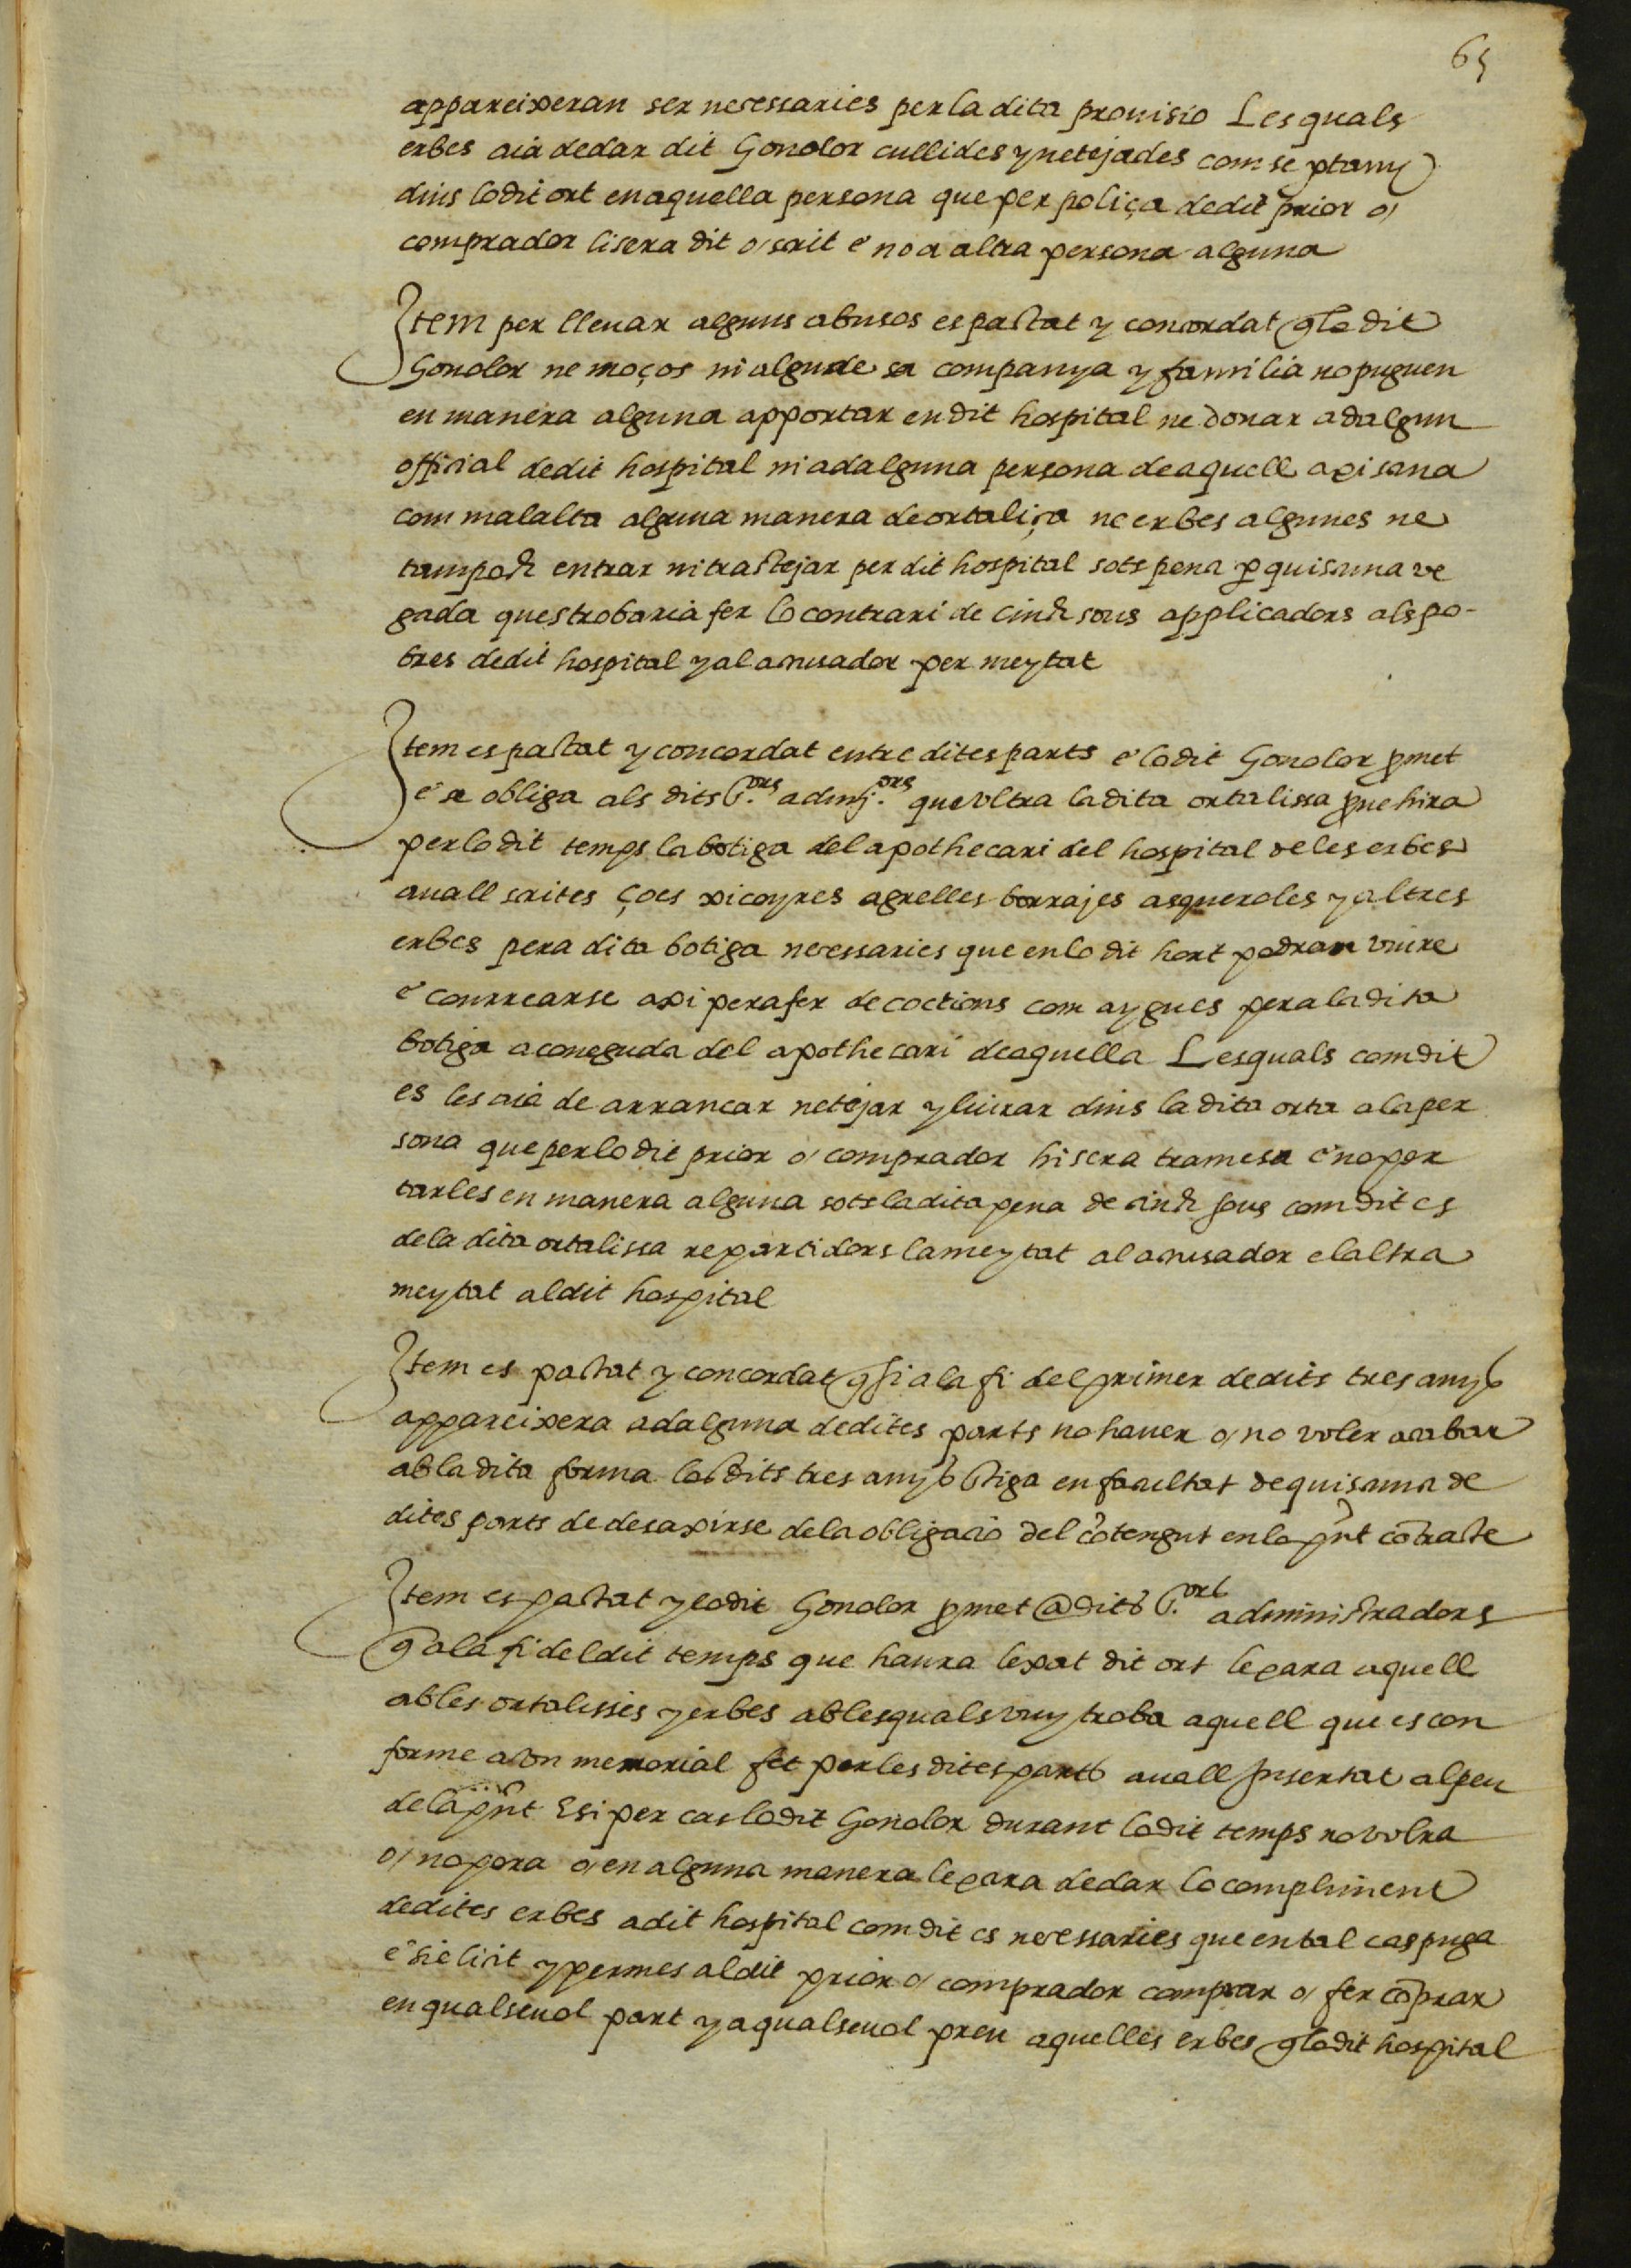 65
appareixeran ser necessaries per la dita prouisio Les quals
erbes aia de dar dit Gonolor cullides y netejades com se ptany
dins lo dit ort en aquella persona que per poliça de dit prior o/
comprador li sera dit o/ scrit e no a altra persona alguna
Item per lleuar alguns abusos es pactat y concordat q lo dit
Gonolor ne moços ni algu de sa companya y familia no puguen
en manera alguna apportar en dit hospital ne donar ad algun
official de dit hospital ni ad alguna persona de aquell axi sana
com malalta alguna manera de ortaliça ne erbes algunes ne
tampoch entrar ni trastejar per dit hospital sots pena p quiscuna ve
gada ques trobaria fer lo contrari de cinch sous applicadors als po-
bres de dit hospital y al acusador per meytat
Item es pactat y concordat entre dites parts e lo dit Gonolor pmet
e se obliga als dits S.ors admj.ors que vltra la dita ortalissa prouehira
per lo dit temps la botiga del apothecari del hospital de les erbes
auall scrites ço es xicoyres agrelles borrajes asqueroles y altres
erbes pera dita botiga necessaries que en lo dit hort podran viure
e conrrearse axi pera fer decoctions com aygues pera la dita
botiga a coneguda del apothecari de aquella Les quals com dit
es les aia de arrancar netejar y liurar dins la dita orta a la per
sona que per lo dit prior o/ comprador hi sera tramesa e no por
tarles en manera alguna sots la dita pena de cinch sous com dit es
de la dita ortalissa repartidors la meytat al acusador e laltra
meytat al dit hospital
Item es pactat y concordat q si a la fi del primer de dits tres anys
appareixera ad alguna de dites parts no hauer o/ no voler acabar
ab la dita forma los dits tres anys stiga en facultat de quiscuna de
dites parts de desaxirse de la obligacio del cōtengut en lo pnt cōtracte
Item es pactat y lo dit Gonolor pmet @ dits S.ors administradors
q a la fi del dit temps que haura lexat dit ort lexara aquell
ab les ortalisses y erbes ab les quals vuy troba aquell que es con
forme a vn memorial fet per les dites parts auall Insertat al peu
de la pnt E si per cas lo dit Gonolor durant lo dit temps no volra
o/ no pora o/ en alguna manera lexara de dar lo compliment
de dites erbes a dit hospital com dit es necessaries que en tal cas puga
e sie licit y permes al dit prior o/ comprador comprar o/ fer cōprar
en qualseuol part y a qualseuol preu aquelles erbes q lo dit hospital